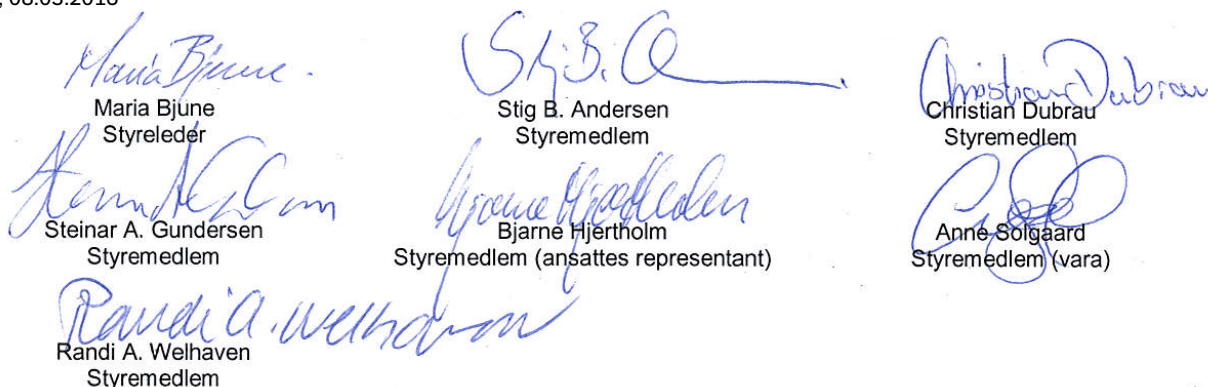 , 08.03.2018
Maria Bjune.
Maria Bjune
Styreleder
Stig B. Andersen
Styremedlem
Christian Dubrau
Christian Dubrau
Styremedlem
Steinar A. Gundersen
Styremedlem
Bjarne Hjertholm
Styremedlem (ansattes representant)
Anne Solgaard
Styremedlem (vara)
Randi A. Welhaven
Randi A. Welhaven
Styremedlem